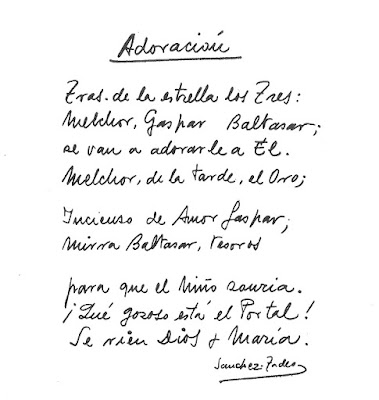 Adoración
Tras de la estrella los Tres:
Melchor, Gaspar Baltasar;
se van a adorarle a Él.
Melchor, de la tarde, el Oro;
Incienso de Amor Gaspar;
Mirra Baltasar, tesoros
para que el Niño sonría.
¡Qué gozoso está el Portal!
Se ríen Dios y María.